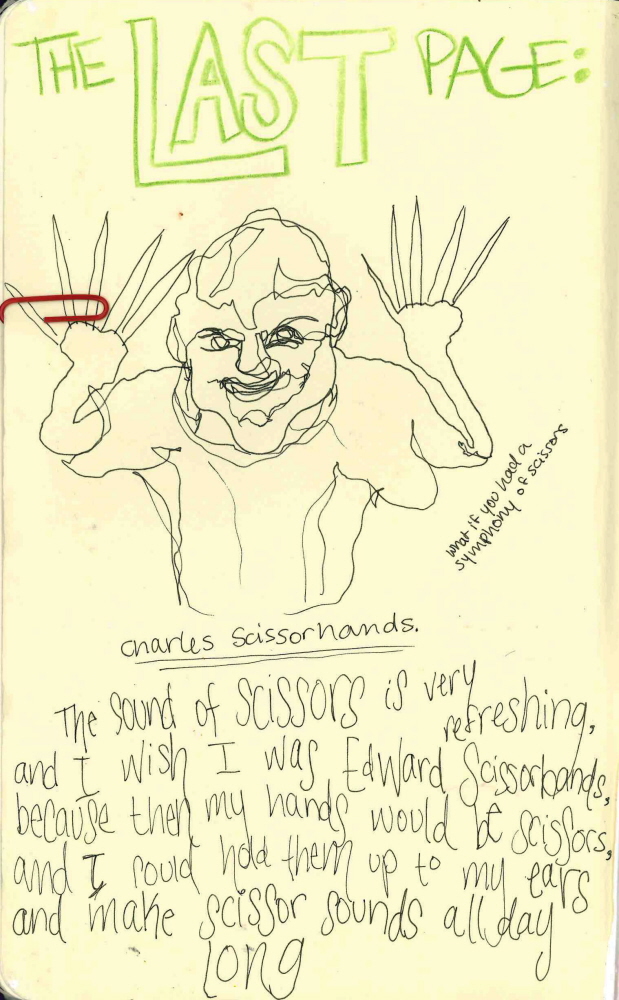 THE LAST PAGE:
what if you had a
symphony of scissors
Charles Scissorhands.
The sound of scissors is very
refreshing,
and I wish I was Edward Scissorhands,
because then my hands would be scissors,
and I could hold them up to my ears
and make scissor sounds all day
long